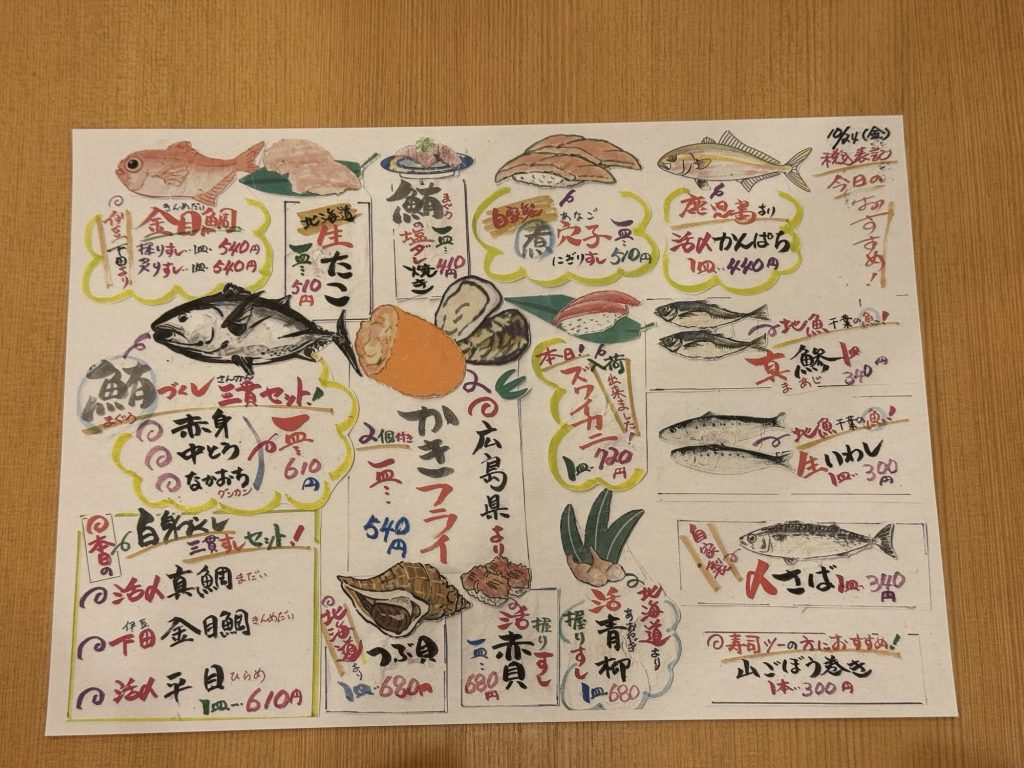 10/24(金)
税込表記
今日の
おすすめ!
伊豆
下田より
きんめだい
金目鯛
握りすし…1皿…540円
炙りすし…1皿…540円
北海道
生たこ
一皿…
510円
まぐろ
鮪の塩すじ焼き
一皿…
410円
自家製
煮
あなご
穴子
にぎりすし
一皿…
510円
鹿児島より
活〆かんぱち
1皿…440円
鮪
まぐろ
づくし
さんかん
三貫セット!
赤身
中とろ
なかおち
グンカン
一皿…
610円
広島県より
かきフライ
2個付き
一皿…
540円
本日!入荷出来ました!
ズワイカニ
1皿…720円
地魚千葉の魚!
真鯵
まあじ
1皿
340円
地魚千葉の魚!
生いわし
1皿…300円
自家製
〆さば
1皿…340円
本日の
白身づくし
三貫すしセット!
活〆真鯛
まだい
伊豆
下田
金目鯛
きんめだい
活〆平目
ひらめ
1皿…610円
北海道より
つぶ貝
1皿…680円
握りすし
活赤貝
一皿…
680円
北海道より
活青柳
あおやぎ
握りすし
1皿…680
寿司ツーの方におすすめ!
山ごぼう巻き
1本…300円